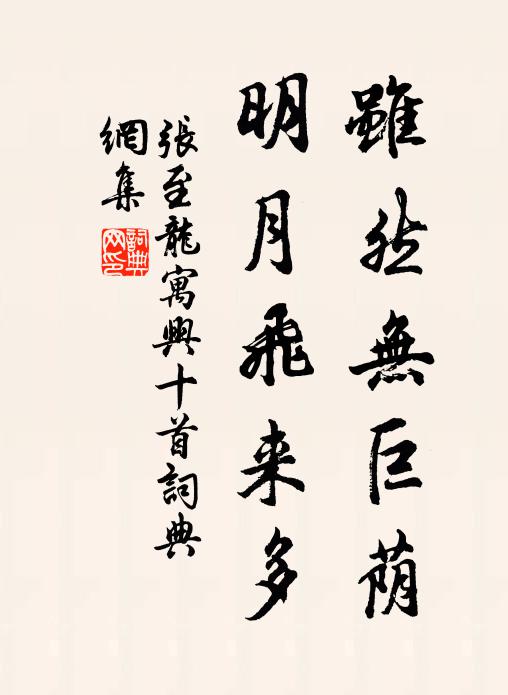 雖然無巨荫
明月飛来多
張至龍寓興十首詞典
網集
詞典
网印